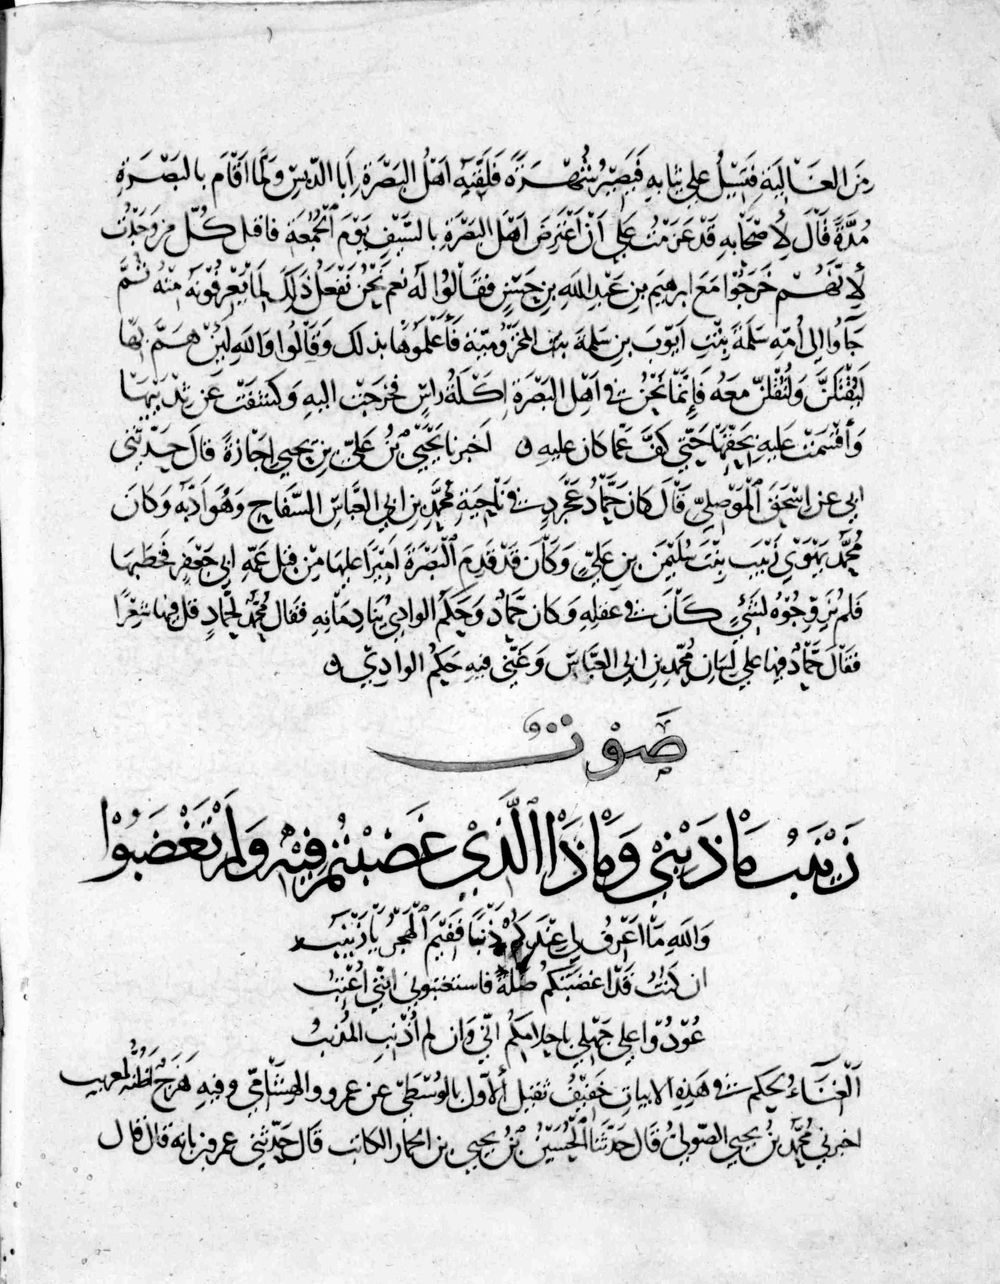 من الغالية فتسيل على ثيابه فيصير شهرةً فلقبه اهل البصرة ابا الدبس ولما اقام بالبصرة
مدة قال لاصحابه قد عزمت على ان اعترض اهل البصرة بالسيف يوم الجمعة فاقتل كل من وجدت
لانهم خرجوا مع ابرهيم بن عبد الله بن حسن فقالوا له نعم نحن نفعل ذلك لما يعرفونه منه ثم
جاوا الى امه سلمة بنت ايوب بن سلمة المخزومية فاعلموها بذلك وقالوا والله لئن هم بها
ليقتلن ولنقتلن معه فانما نحن في اهل البصرة اكلة راس فخرجت اليه وكشفت عن ثدييها
واقسمت عليه بحقها حتى كف عما كان عليه ه اخبرنا يحيى بن علي بن يحيى اجازة قال حدثني
ابي عن اسحق الموصلي قال كان حماد عجرد في ناحية محمد بن ابي العباس السفاح وهو ادبه وكان
محمد يهوى زينب بنت سليمن بن علي وكان قد قدم البصرة اميرا عليها من قبل عمه ابي جعفر فخطبها
فلم يزوجوه لشيء كان في عقله وكان حماد وحكم الوادي ينادمانه فقال محمد لحماد قل فيها شعرا
فقال حماد فيها على لسان محمد بن ابي العباس وغنى فيه حكم الوادي ه
صوت
زينب ما ذنبي وماذا الذي غضبتم فيه ولم تغضبوا
والله ما اعرف لي عندكم ذنبا ففيم الهجر يا زينب
ان كنت قد اغضبتكم ضلة فاستعتبوني انني اعتب
عودوا على جهلي باحلامكم اني وان لم اذنب المذنب
الغناء لحكم في هذه الابيات خفيف ثقيل الاول بالوسطى عن عمرو والهشامي وفيه هزج اظنه لعريب
اخبرني محمد بن يحيى الصولي قال حدثنا الحسين بن يحيى بن الحمار الكاتب قال حدثني عمرو بن بانه قال قال